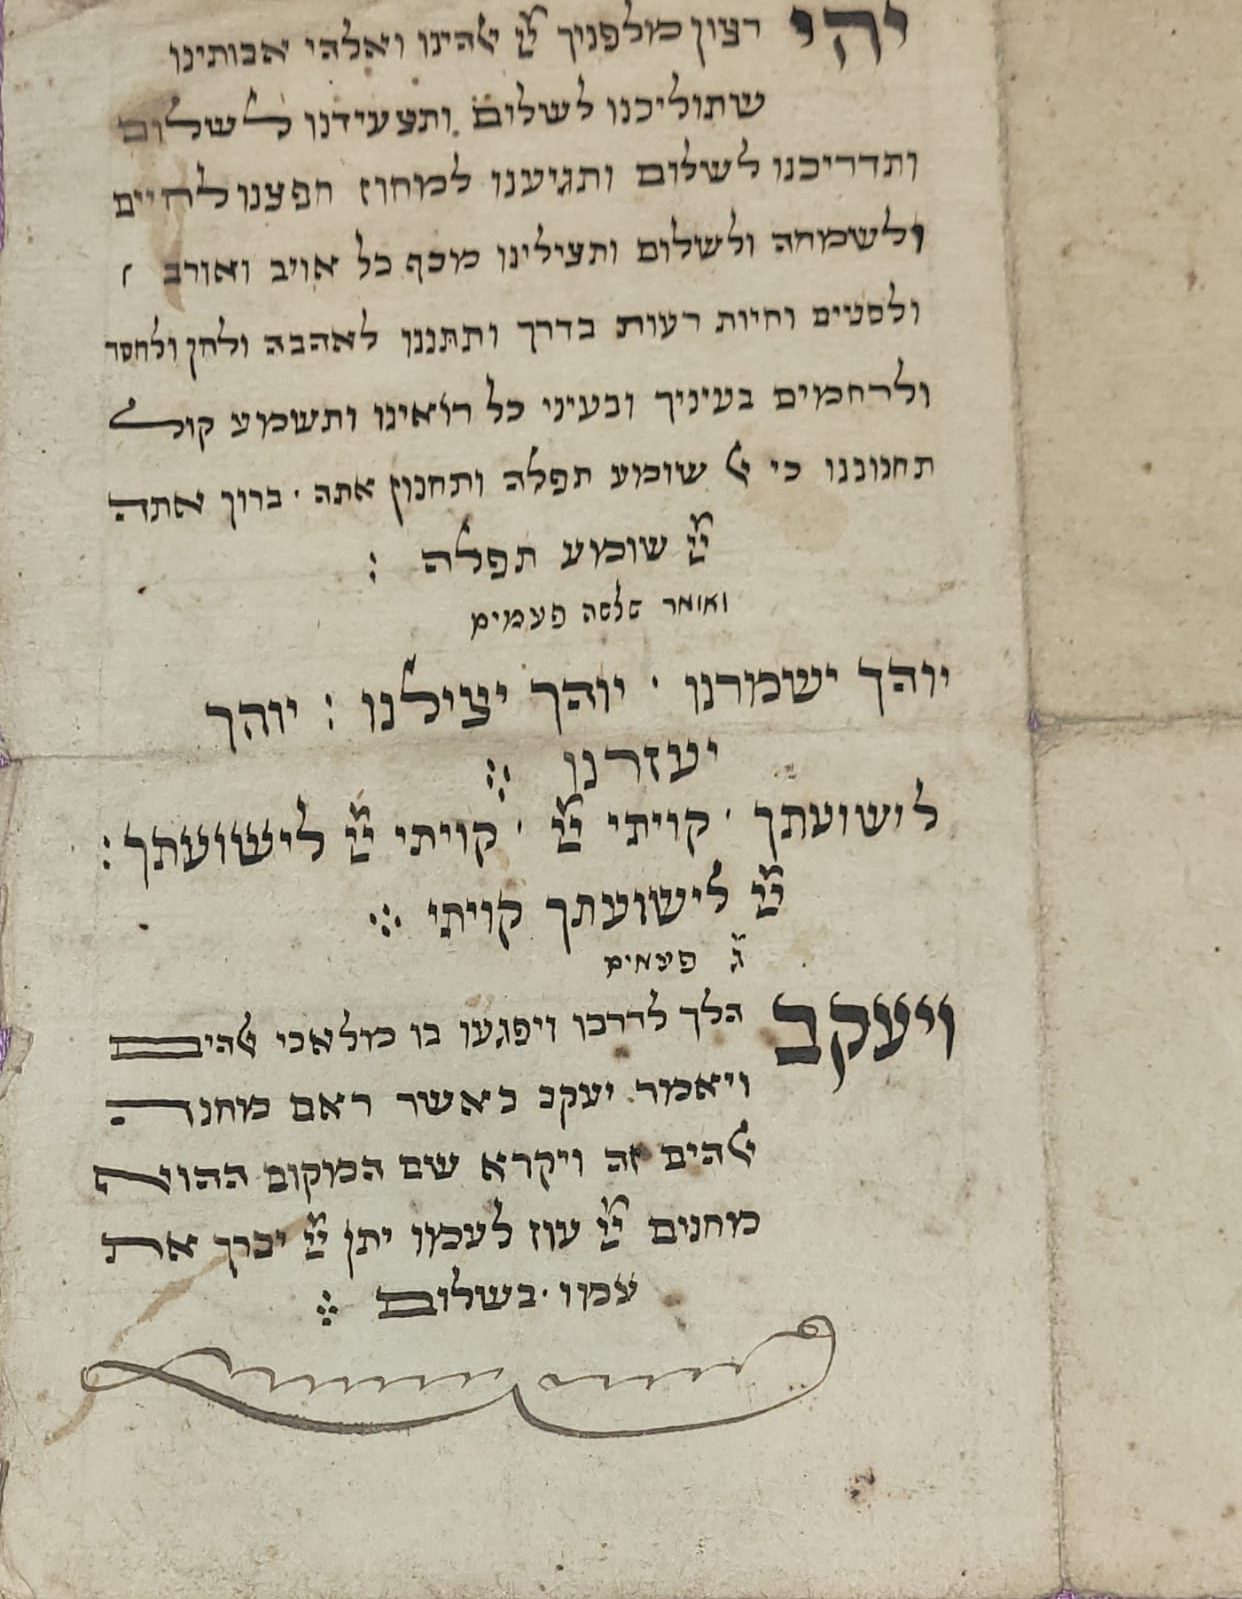 יהי רצון מלפניך יי׳ אלהינו ואלהי אבותינו
שתוליכנו לשלום ותצעידנו לשלום
ותדריכנו לשלום ותגיענו למחוז חפצנו לחיים
ולשמחה ולשלום ותצילינו מכף כל אויב ואורב
ולסטים וחיות רעות בדרך ותתננו לאהבה ולחן ולחסד
ולרחמים בעיניך ובעיני כל רואינו ותשמע קול
תחנוננו כי אל שומע תפלה ותחנון אתה · ברוך אתה
יי׳ שומע תפלה :
ואומר שלשה פעמים
יוהך ישמרנו · יוהך יצילנו : יוהך
יעזרנו
לישועתך · קויתי יי׳ · קויתי יי׳ לישועתך :
יי׳ לישועתך קויתי
ג׳ פעמים
ויעקב הלך לדרכו ויפגעו בו מלאכי אלהים
ויאמר יעקב כאשר ראם מחנה
אלהים זה ויקרא שם המקום ההוא
מחנים יי׳ עוז לעמו יתן יי׳ יברך את
עמו · בשלום